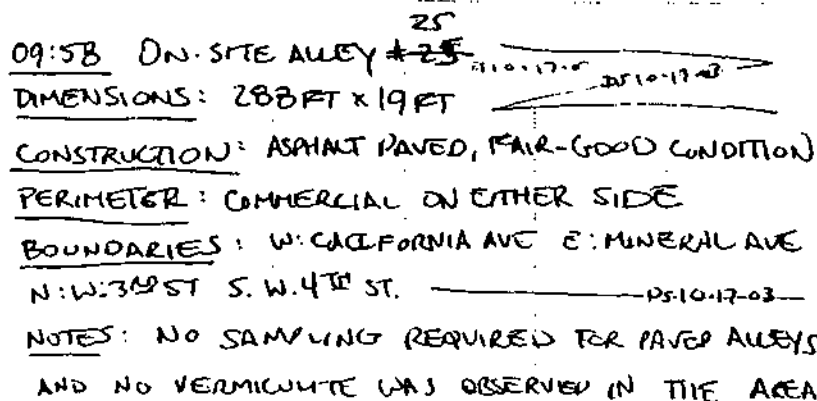 25
09:58 ON-SITE ALLEY #25
DS 10-17-03
DIMENSIONS: 288 FT x 19 FT
CONSTRUCTION: ASPHALT PAVED, FAIR-GOOD CONDITION
PERIMETER: COMMERCIAL ON EITHER SIDE
BOUNDARIES: W: CALIFORNIA AVE E: MINERAL AVE
N: W. 3RD ST S. W. 4TH ST. DS 10-17-03
NOTES: NO SAMPLING REQUIRED FOR PAVED ALLEYS
AND NO VERMICULITE WAS OBSERVED IN THE AREA